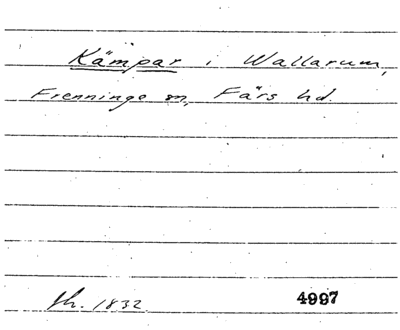 Kämpar i Wallarum,
Frenninge sn, Färs hd.
fh. 1832 4997